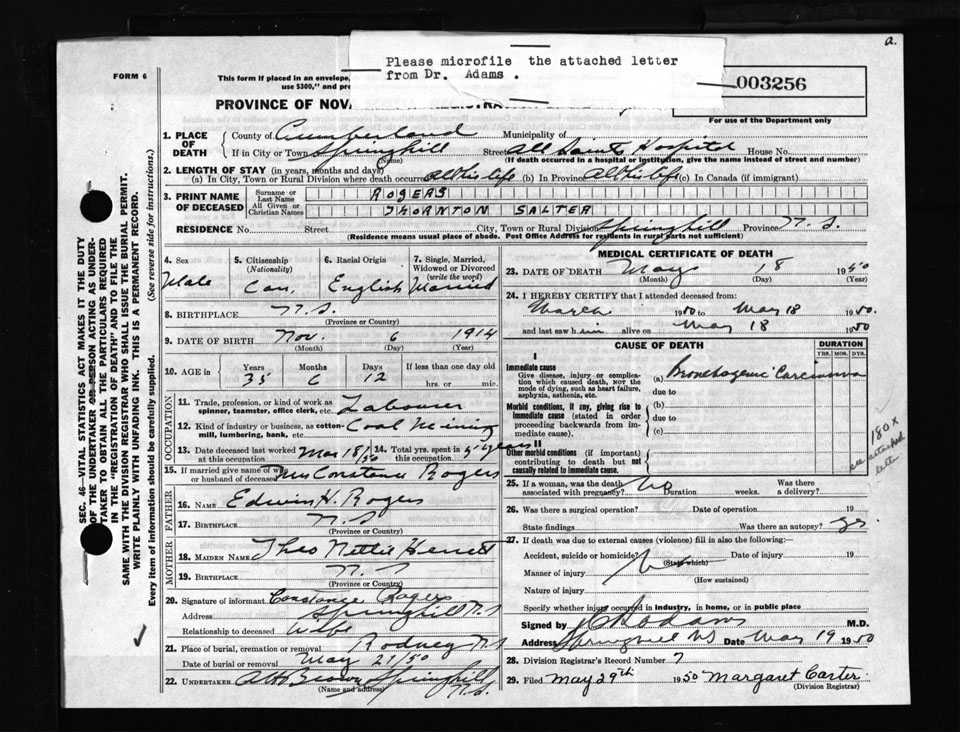 a.
Please microfile the attached letter
from Dr. Adams .
FORM 6
This form if placed in an envelope,
use $300," and pre
PROVINCE OF NOV
003256
For use of the Department only
1. PLACE OF DEATH
County of Cumberland Municipality of
If in City or Town Springhill Street All Saints Hospital House No.
(Name) (If death occurred in a hospital or institution, give the name instead of street and number)
2. LENGTH OF STAY (in years, months and days)
(a) In City, Town or Rural Division where death occurred All his life (b) In Province All his life (c) In Canada (if immigrant)
3. PRINT NAME OF DECEASED
Surname or Last Name ROGERS
All Given or Christian Names THORNTON SALTER
RESIDENCE No. Street City, Town or Rural Division Springhill Province N.S.
(Residence means usual place of abode. Post Office Address for residents in rural parts not sufficient)
4. Sex Male
5. Citizenship (Nationality) Can.
6. Racial Origin English
7. Single, Married, Widowed or Divorced (write the word) Married
8. BIRTHPLACE N.S.
(Province or Country)
9. DATE OF BIRTH Nov. 6 1914
(Month) (Day) (Year)
10. AGE in Years 35 Months 6 Days 12 If less than one day old hrs. or min.
OCCUPATION
11. Trade, profession, or kind of work as spinner, teamster, office clerk, etc. Labourer
12. Kind of industry or business, as cotton-mill, lumbering, bank, etc. Coal Mining
13. Date deceased last worked at this occupation Mar 18/50 14. Total yrs. spent in this occupation years
15. If married give name of wife or husband of deceased Mrs Constance Rogers
FATHER
16. NAME Edwin H. Rogers
17. BIRTHPLACE N.S
(Province or Country)
MOTHER
18. MAIDEN NAME Theo Nettie
19. BIRTHPLACE N.S
(Province or Country)
20. Signature of informant Constance Rogers
Address Springhill N.S
Relationship to deceased Wife
21. Place of burial, cremation or removal Rodney N.S
Date of burial or removal May 21/50
22. UNDERTAKER Brown Springhill N.S.
(Name and address)
MEDICAL CERTIFICATE OF DEATH
23. DATE OF DEATH May 18 1950
(Month) (Day) (Year)
24. I HEREBY CERTIFY that I attended deceased from:
March 1950 to May 18 1950.
and last saw him alive on May 18 1950
CAUSE OF DEATH
DURATION
YRS. MOS. DYS.
I
Immediate cause
Give disease, injury or complication which caused death, NOT the mode of dying, such as heart failure, asphyxia, asthenia, etc.
(a) Bronchogenic Carcinoma
due to
Morbid conditions, if any, giving rise to immediate cause (stated in order proceeding backwards from immediate cause).
(b)
due to
(c)
II
Other morbid conditions (if important) contributing to death but not causally related to immediate cause.
180x
see attached letter
25. If a woman, was the death associated with pregnancy? No Duration weeks. Was there a delivery?
26. Was there a surgical operation? Date of operation 19
State findings Was there an autopsy?
27. If death was due to external causes (violence) fill in also the following:—
Accident, suicide or homicide? No (State which) Date of injury 19
Manner of injury
(How sustained)
Nature of injury
Specify whether injury occurred in industry, in home, or in public place
Signed by Adams M.D.
Address Springhill NS Date May 19 1950
28. Division Registrar's Record Number 7
29. Filed May 29th 1950 Margaret Carter
(Division Registrar)
SEC. 46—VITAL STATISTICS ACT MAKES IT THE DUTY
OF THE UNDERTAKER OR PERSON ACTING AS UNDER-
TAKER TO OBTAIN ALL THE PARTICULARS REQUIRED
IN THE "REGISTRATION OF DEATH" AND TO FILE THE
SAME WITH THE DIVISION REGISTRAR WHO SHALL ISSUE THE BURIAL PERMIT.
WRITE PLAINLY WITH UNFADING INK. THIS IS A PERMANENT RECORD.
Every item of information should be carefully supplied. (See reverse side for instructions.)